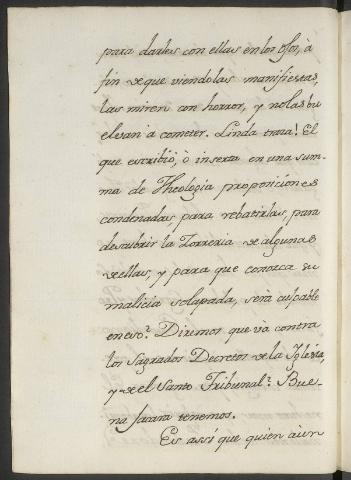 para darles con ellas en los ojos, à
fin de que viendolas manifiestas,
las miren con horror, y no las bu
elvan à cometer. Linda traza! El
que escribiò, ò inserta en una sum-
ma de Theologia proposiciones
condenadas, para rebatirlas, para
descubrir la Torreria de algunas
de ellas, y para que conozca su
malicia solapada, serà culpable
en eso? Diremos que và contra
los Sagrados Decretos de la Iglesia,
y del Santo Tribunal? Bue-
na jacara tenemos.
Es assi que quien